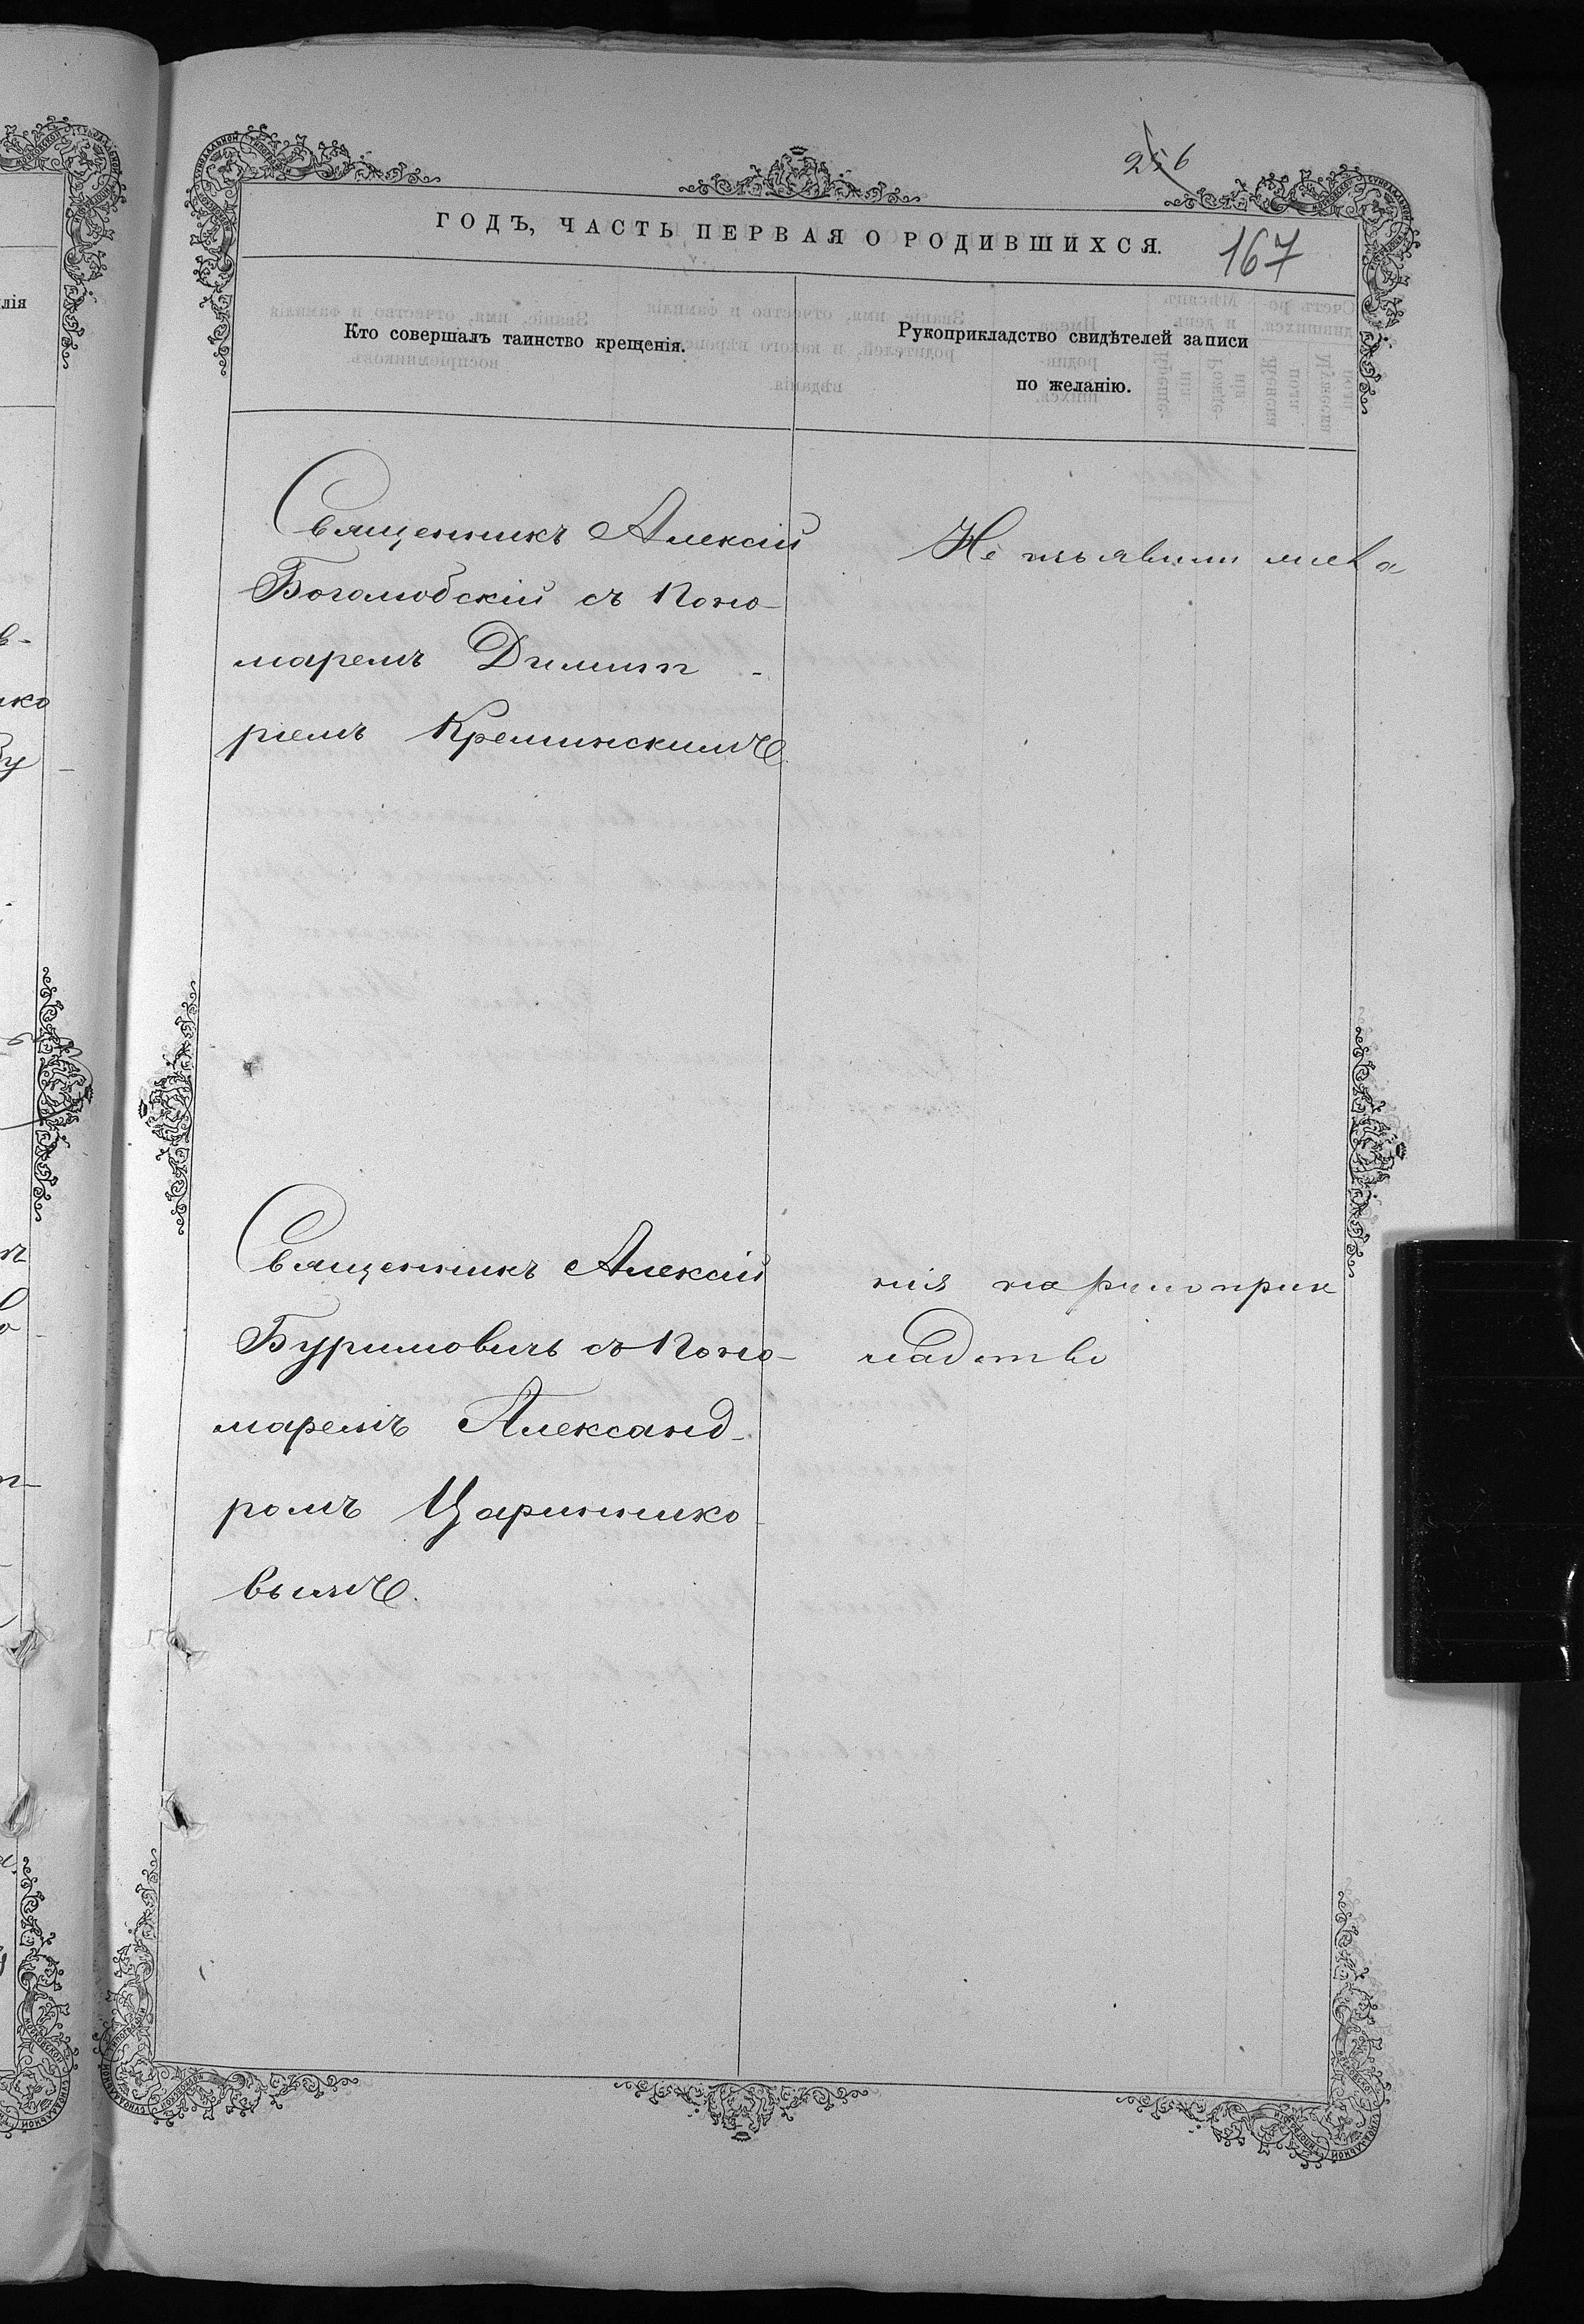 256
ГОДЪ, ЧАСТЬ ПЕРВАЯ О РОДИВШИХСЯ.
167
Кто совершалъ таинство крещенія.
Рукоприкладство свидѣтелей записи
по желанію.
Священникъ Алексій
Боголюбскій съ Поно-
маремъ Димит-
ріемъ Кременскимъ
Не изъявили жела
Священникъ Алексій
Буримовичъ съ Поно-
маремъ Александ-
ромъ Цариннико-
вымъ.
нія на рукоприк
ладство